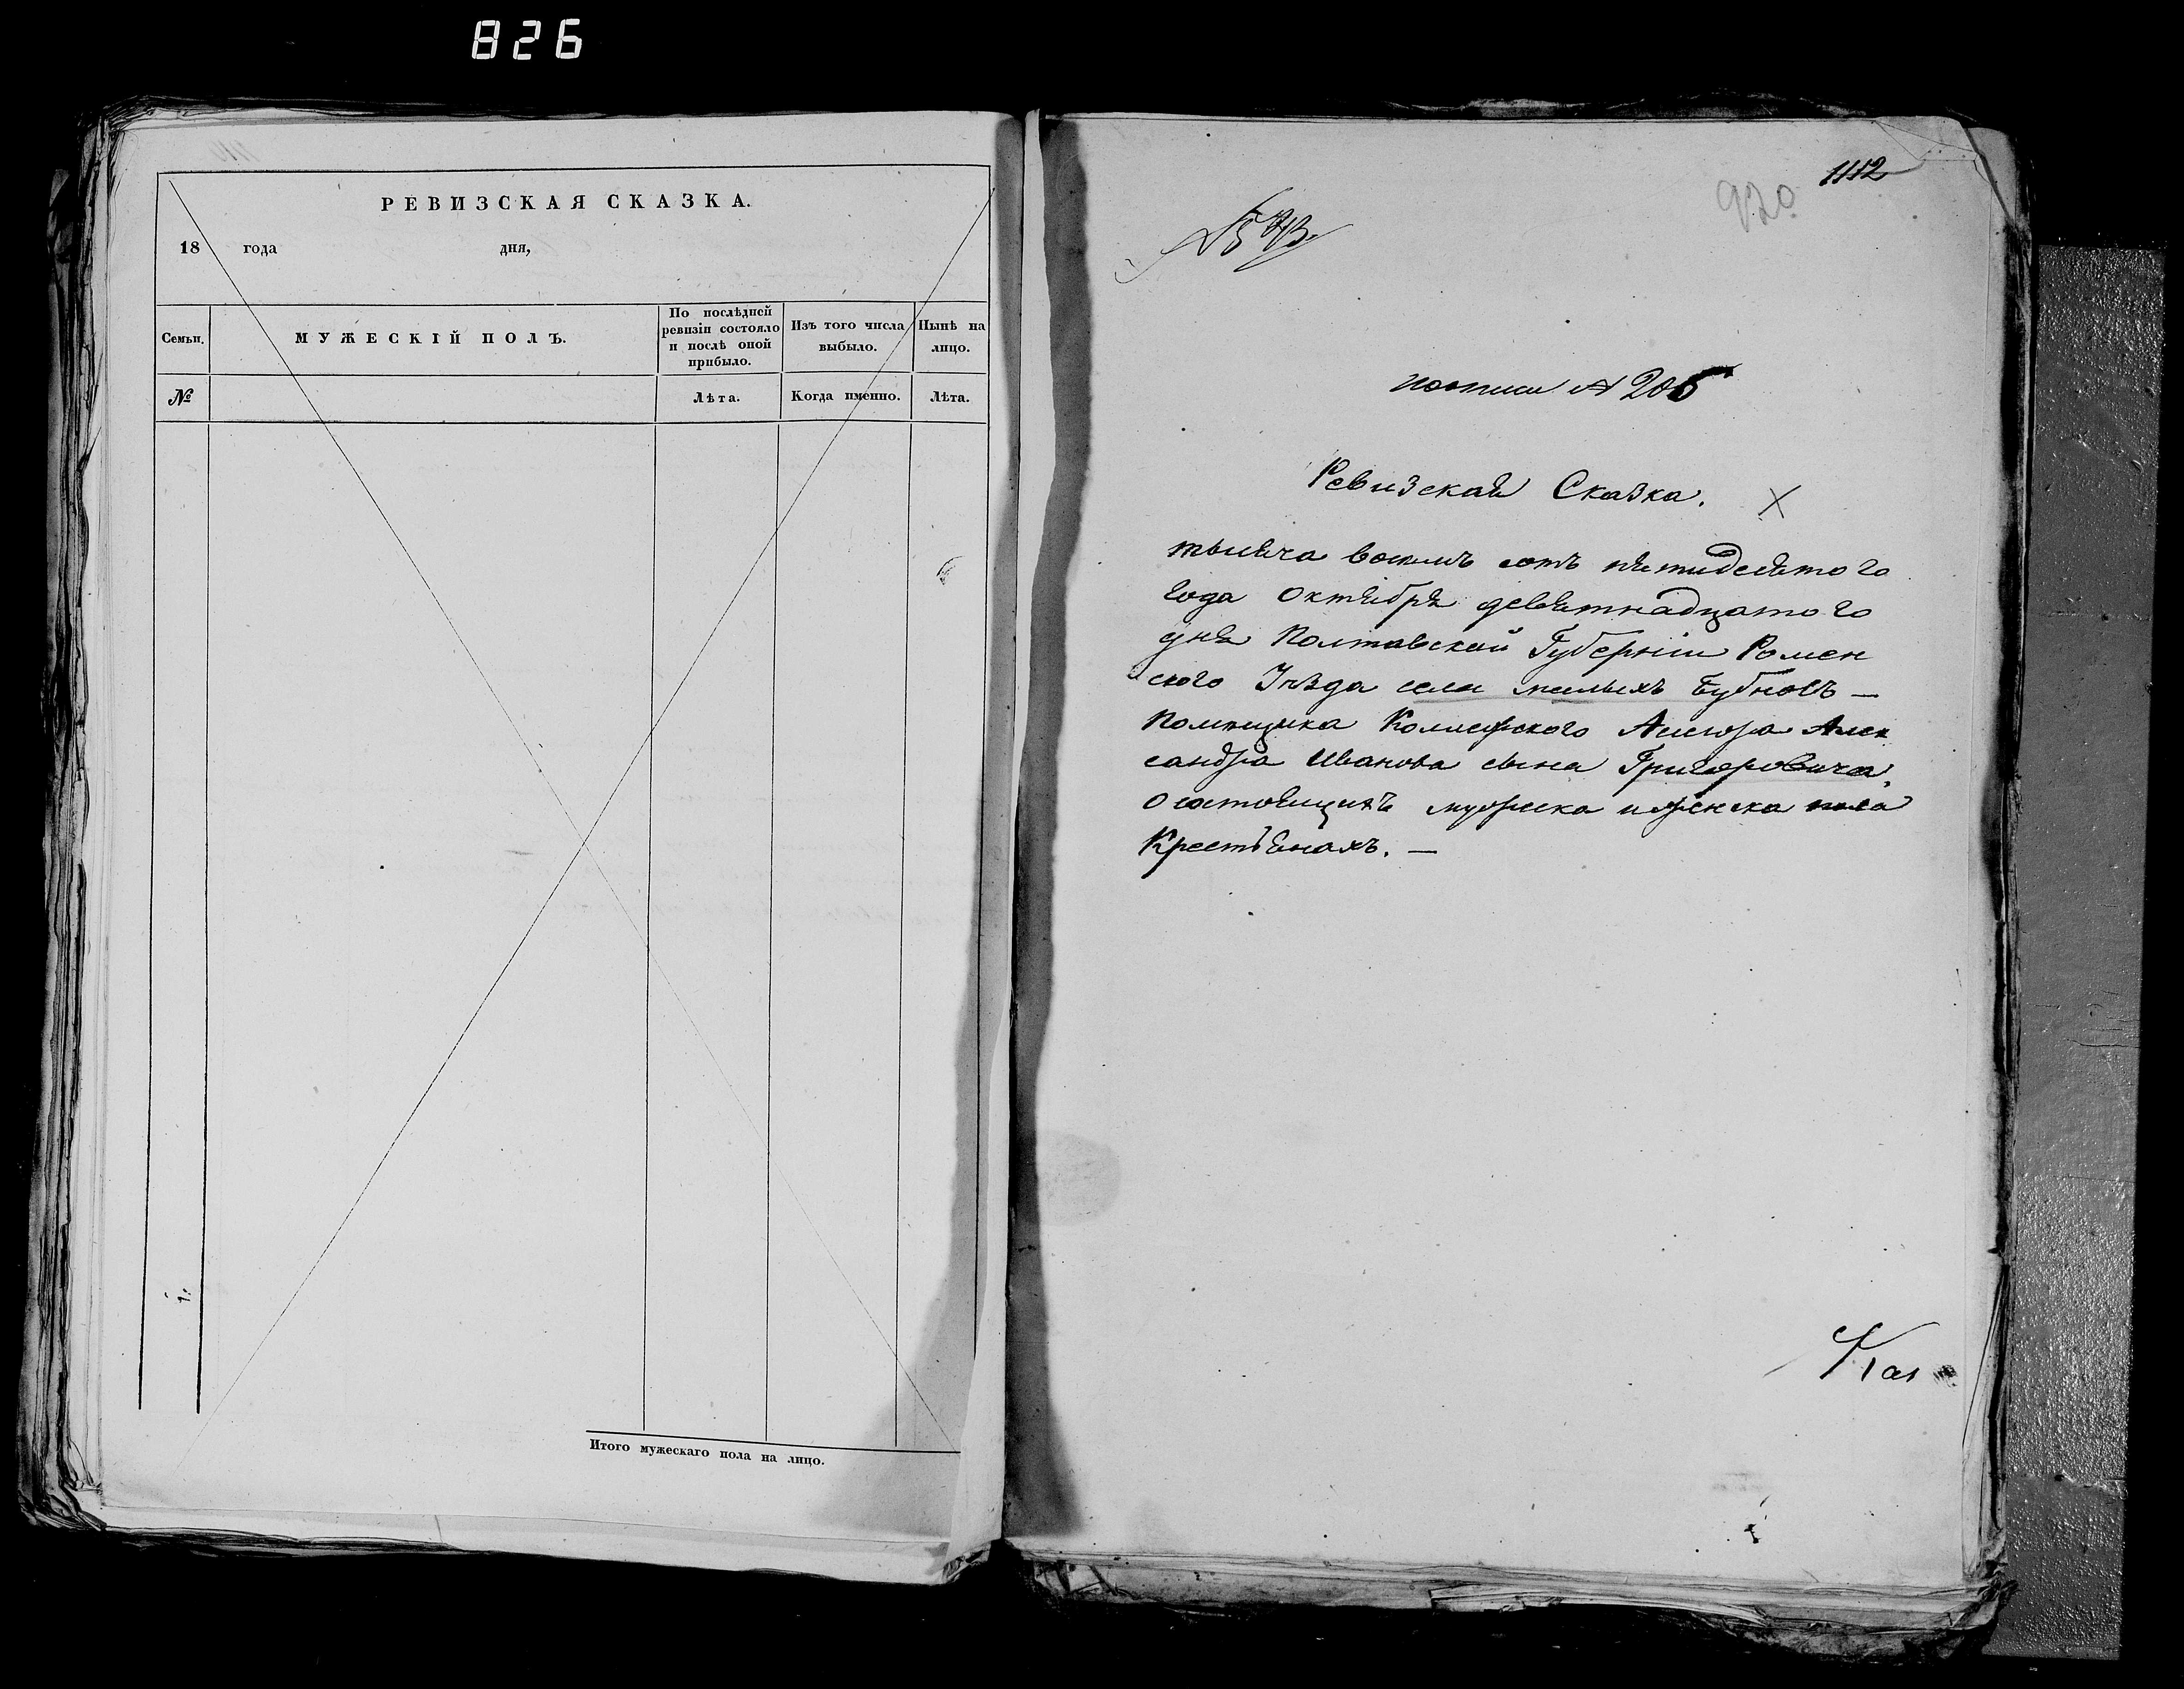 826
РЕВИЗСКАЯ СКАЗКА.
18 года дня,
Семьи.
МУЖЕСКІЙ ПОЛЪ.
По послѣдней
ревизіи состояло
и послѣ оной
прибыло.
Изъ того числа
выбыло.
Нынѣ на
лицо.
№
Лѣта.
Когда именно.
Лѣта.
Итого мужескаго пола на лицо.
1112
920
поописи № 205
Ревизская Сказка.
тысяча восемь сотъ пятидесятого
года Октября девятнадцатого
дня Полтавской Губерніи Ромен
ского Уѣзда села малыхъ Бубновъ —
Помещика Колежского Асесора Алек
сандра Иванова сына Григоровича,
О состоящихъ мужеска и женска пола
Крестьянахъ. —
Ка